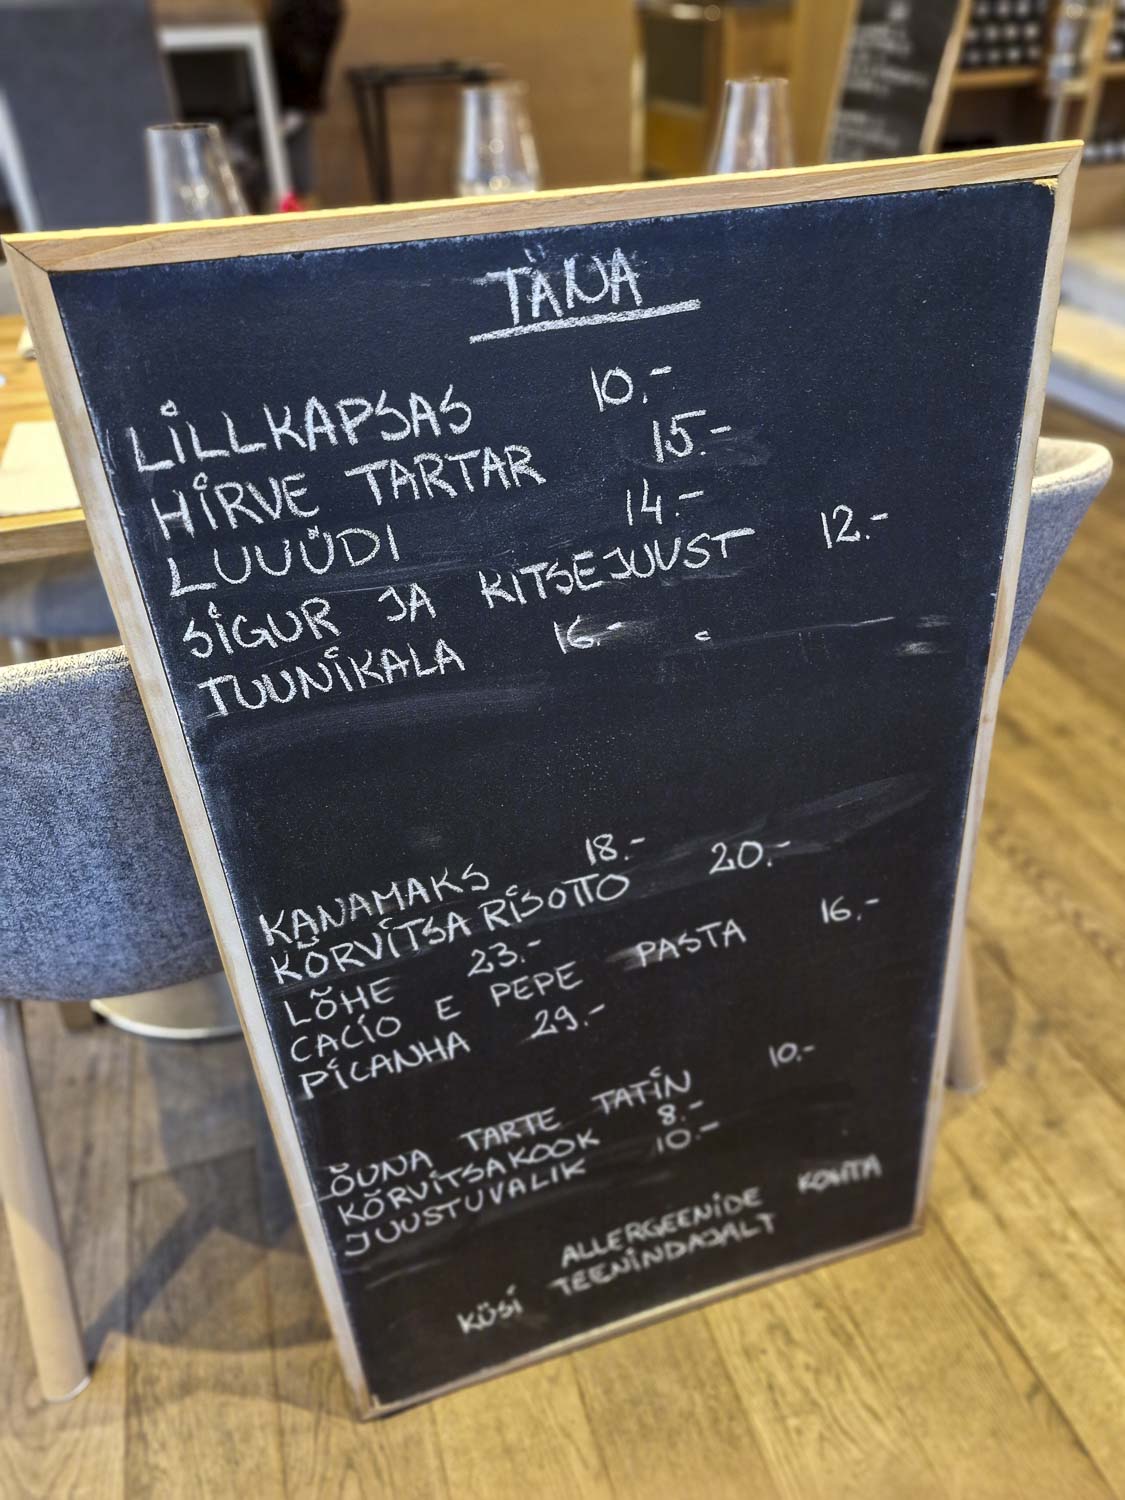 TÄNA
LILLKAPSAS 10.-
HIRVE TARTAR 15.-
LUUÜDI 14.-
SIGUR JA KITSEJUUST 12.-
TUUNIKALA 16.-
KANAMAKS 18.-
KÕRVITSA RISOTTO 20.-
LÕHE 23.-
CACIO E PEPE PASTA 16.-
PICANHA 29.-
ÕUNA TARTE TATIN 10.-
KÕRVITSAKOOK 8.-
JUUSTUVALIK 10.-
ALLERGEENIDE KOHTA
KÜSI TEENINDAJALT